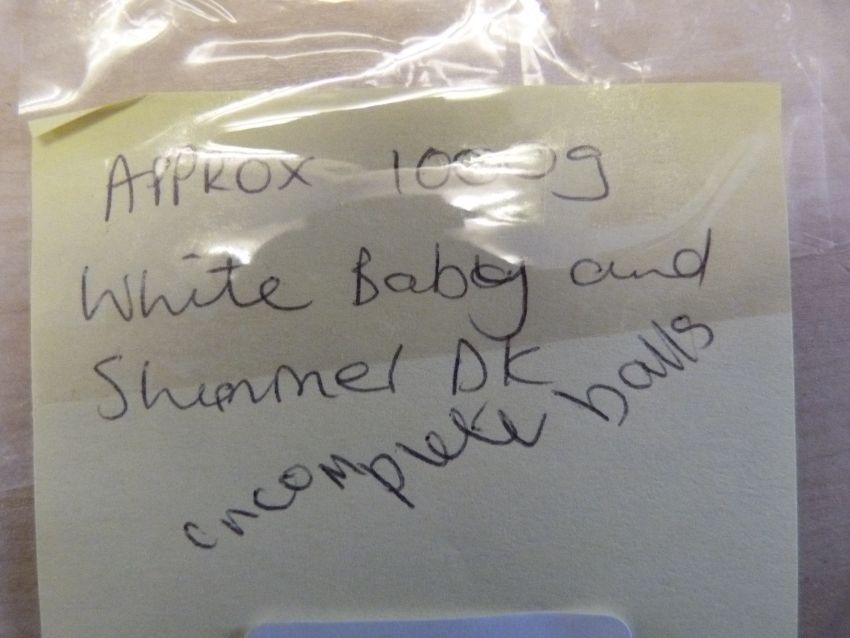 APPROX 1000g
White Baby and
Shimmer DK
incomplete balls